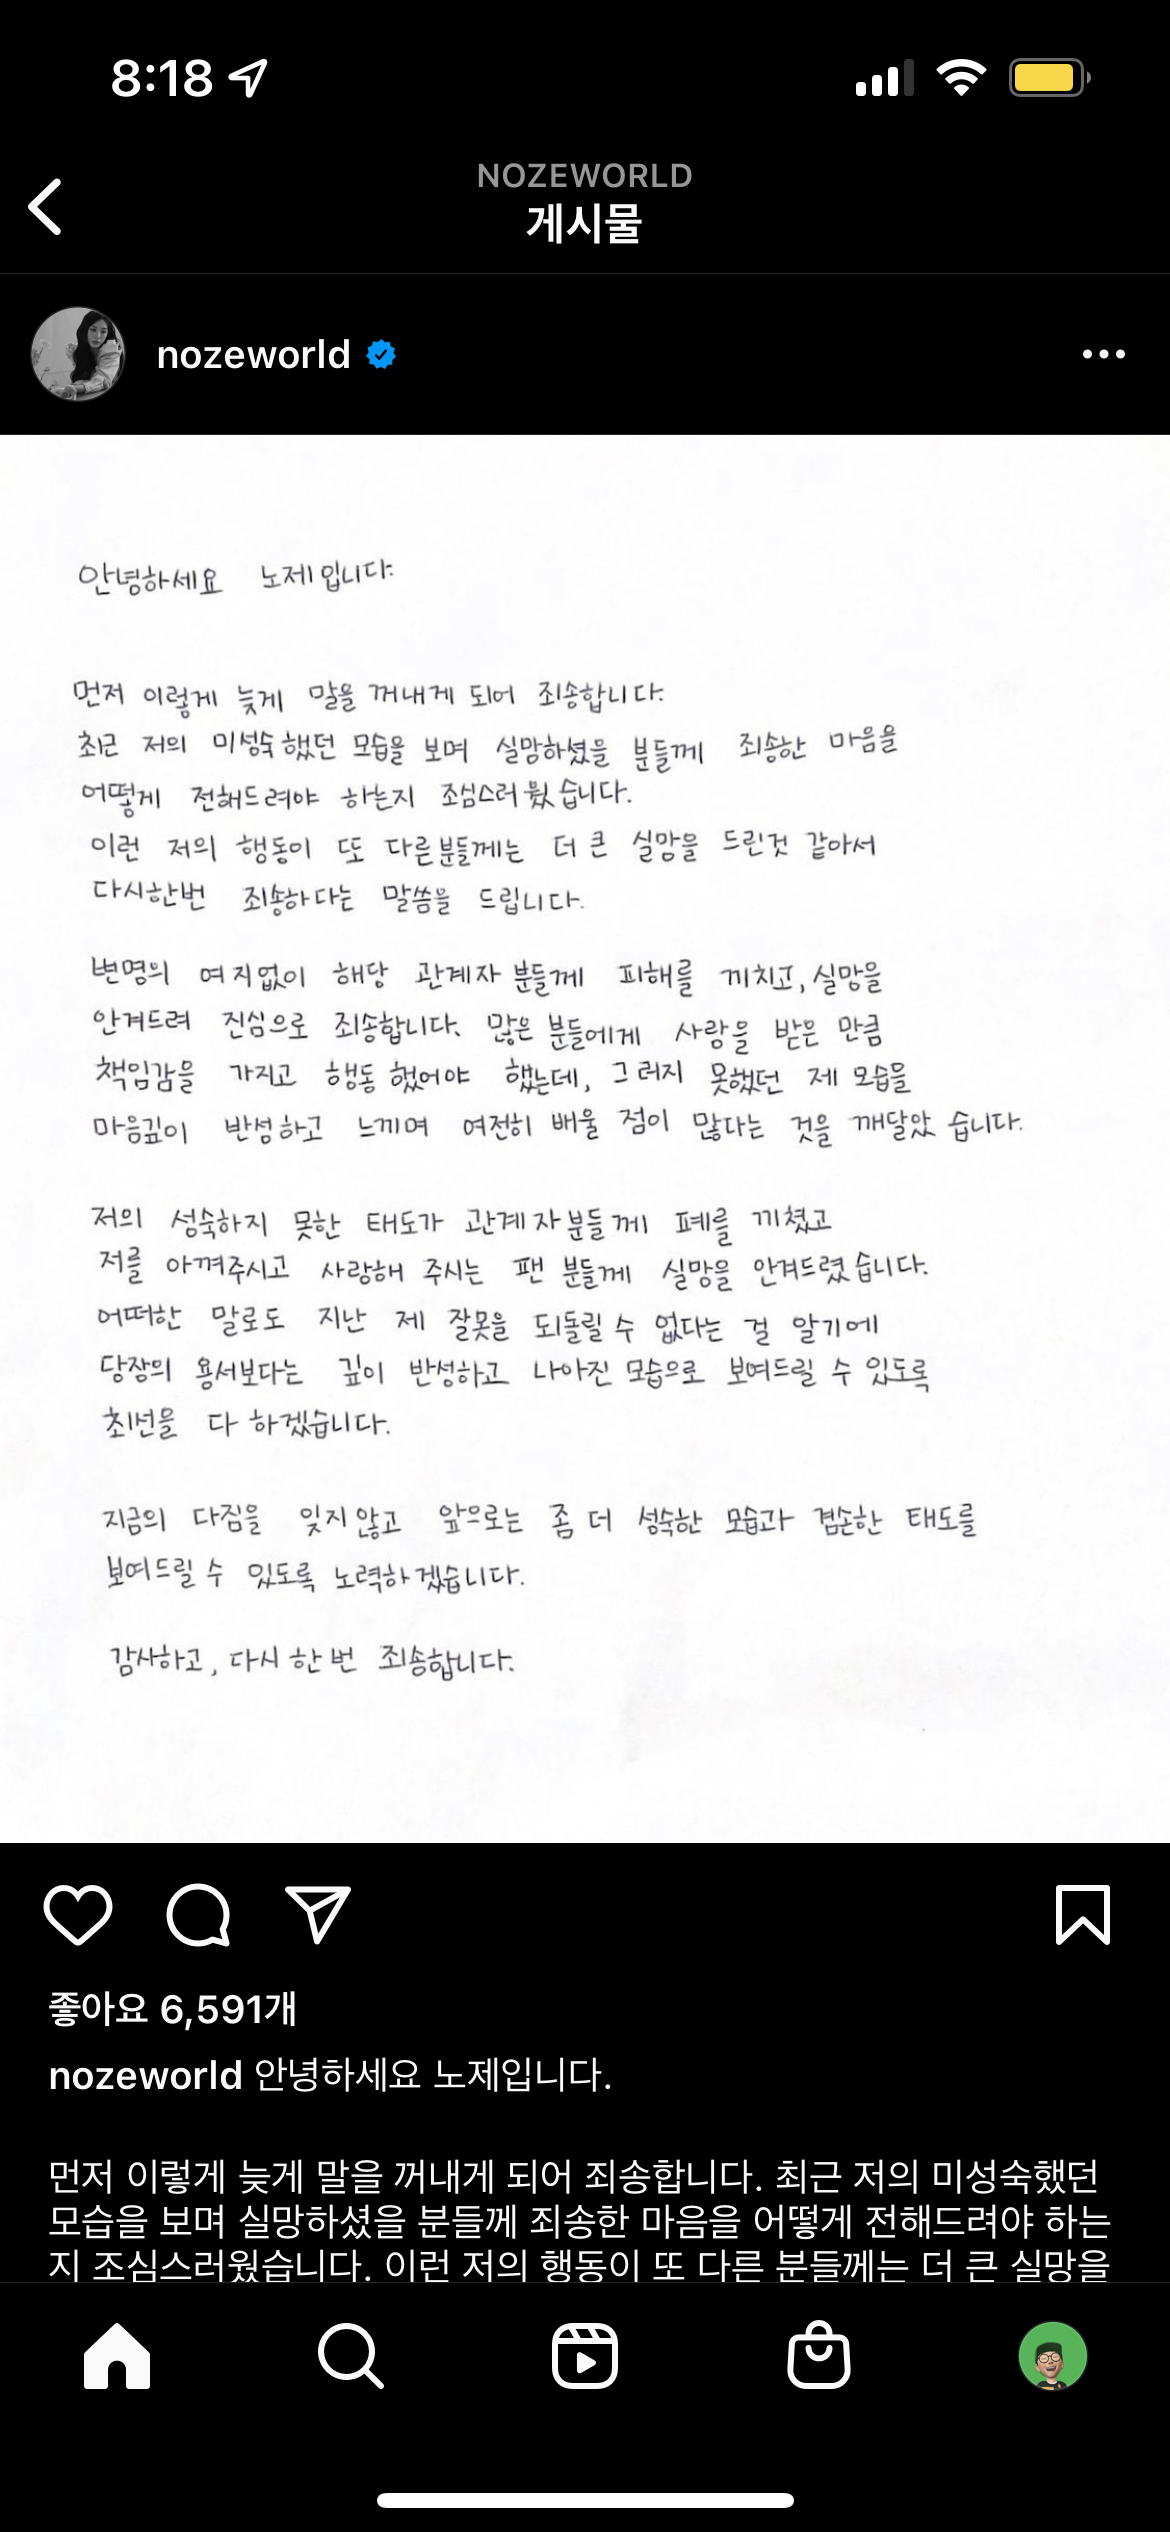 8:18
NOZEWORLD
게시물
nozeworld
안녕하세요 노제입니다.
먼저 이렇게 늦게 말을 꺼내게 되어 죄송합니다.
최근 저의 미성숙했던 모습을 보며 실망하셨을 분들께 죄송한 마음을
어떻게 전해드려야 하는지 조심스러웠습니다.
이런 저의 행동이 또 다른분들께는 더 큰 실망을 드린것 같아서
다시한번 죄송하다는 말씀을 드립니다.
변명의 여지없이 해당 관계자 분들께 피해를 끼치고, 실망을
안겨드려 진심으로 죄송합니다. 많은 분들에게 사랑을 받은 만큼
책임감을 가지고 행동했어야 했는데, 그러지 못했던 제 모습을
마음깊이 반성하고 느끼며 여전히 배울 점이 많다는 것을 깨달았습니다.
저의 성숙하지 못한 태도가 관계자분들께 폐를 끼쳤고
저를 아껴주시고 사랑해 주시는 팬 분들께 실망을 안겨드렸습니다.
어떠한 말로도 지난 제 잘못을 되돌릴 수 없다는 걸 알기에
당장의 용서보다는 깊이 반성하고 나아진 모습으로 보여드릴 수 있도록
최선을 다 하겠습니다.
지금의 다짐을 잊지않고 앞으로는 좀 더 성숙한 모습과 겸손한 태도를
보여드릴 수 있도록 노력하겠습니다.
감사하고, 다시 한번 죄송합니다.
좋아요 6,591개
nozeworld 안녕하세요 노제입니다.
먼저 이렇게 늦게 말을 꺼내게 되어 죄송합니다. 최근 저의 미성숙했던
모습을 보며 실망하셨을 분들께 죄송한 마음을 어떻게 전해드려야 하는
지 조심스러웠습니다. 이런 저의 행동이 또 다른 분들께는 더 큰 실망을